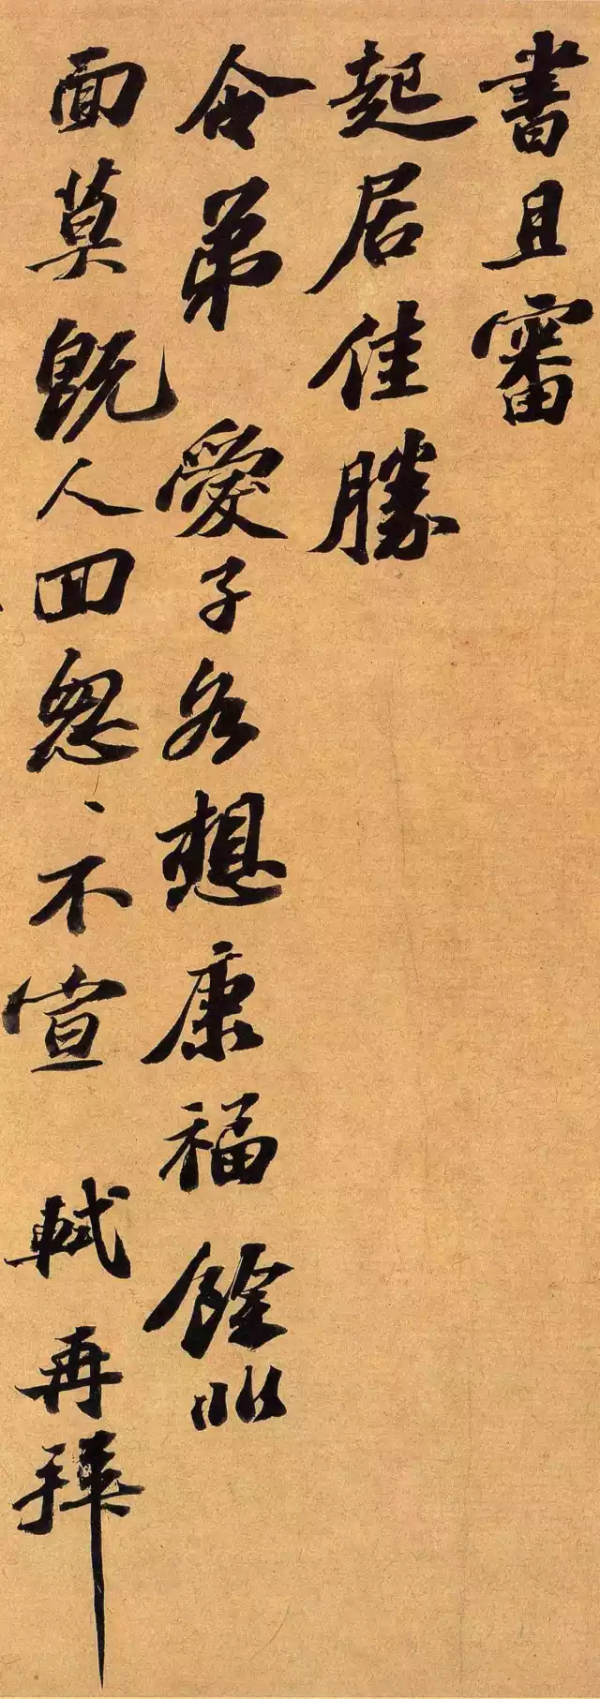 書且審
起居佳勝
令弟 愛子各想康福 餘非
面莫既人回怱、不宣 軾再拜